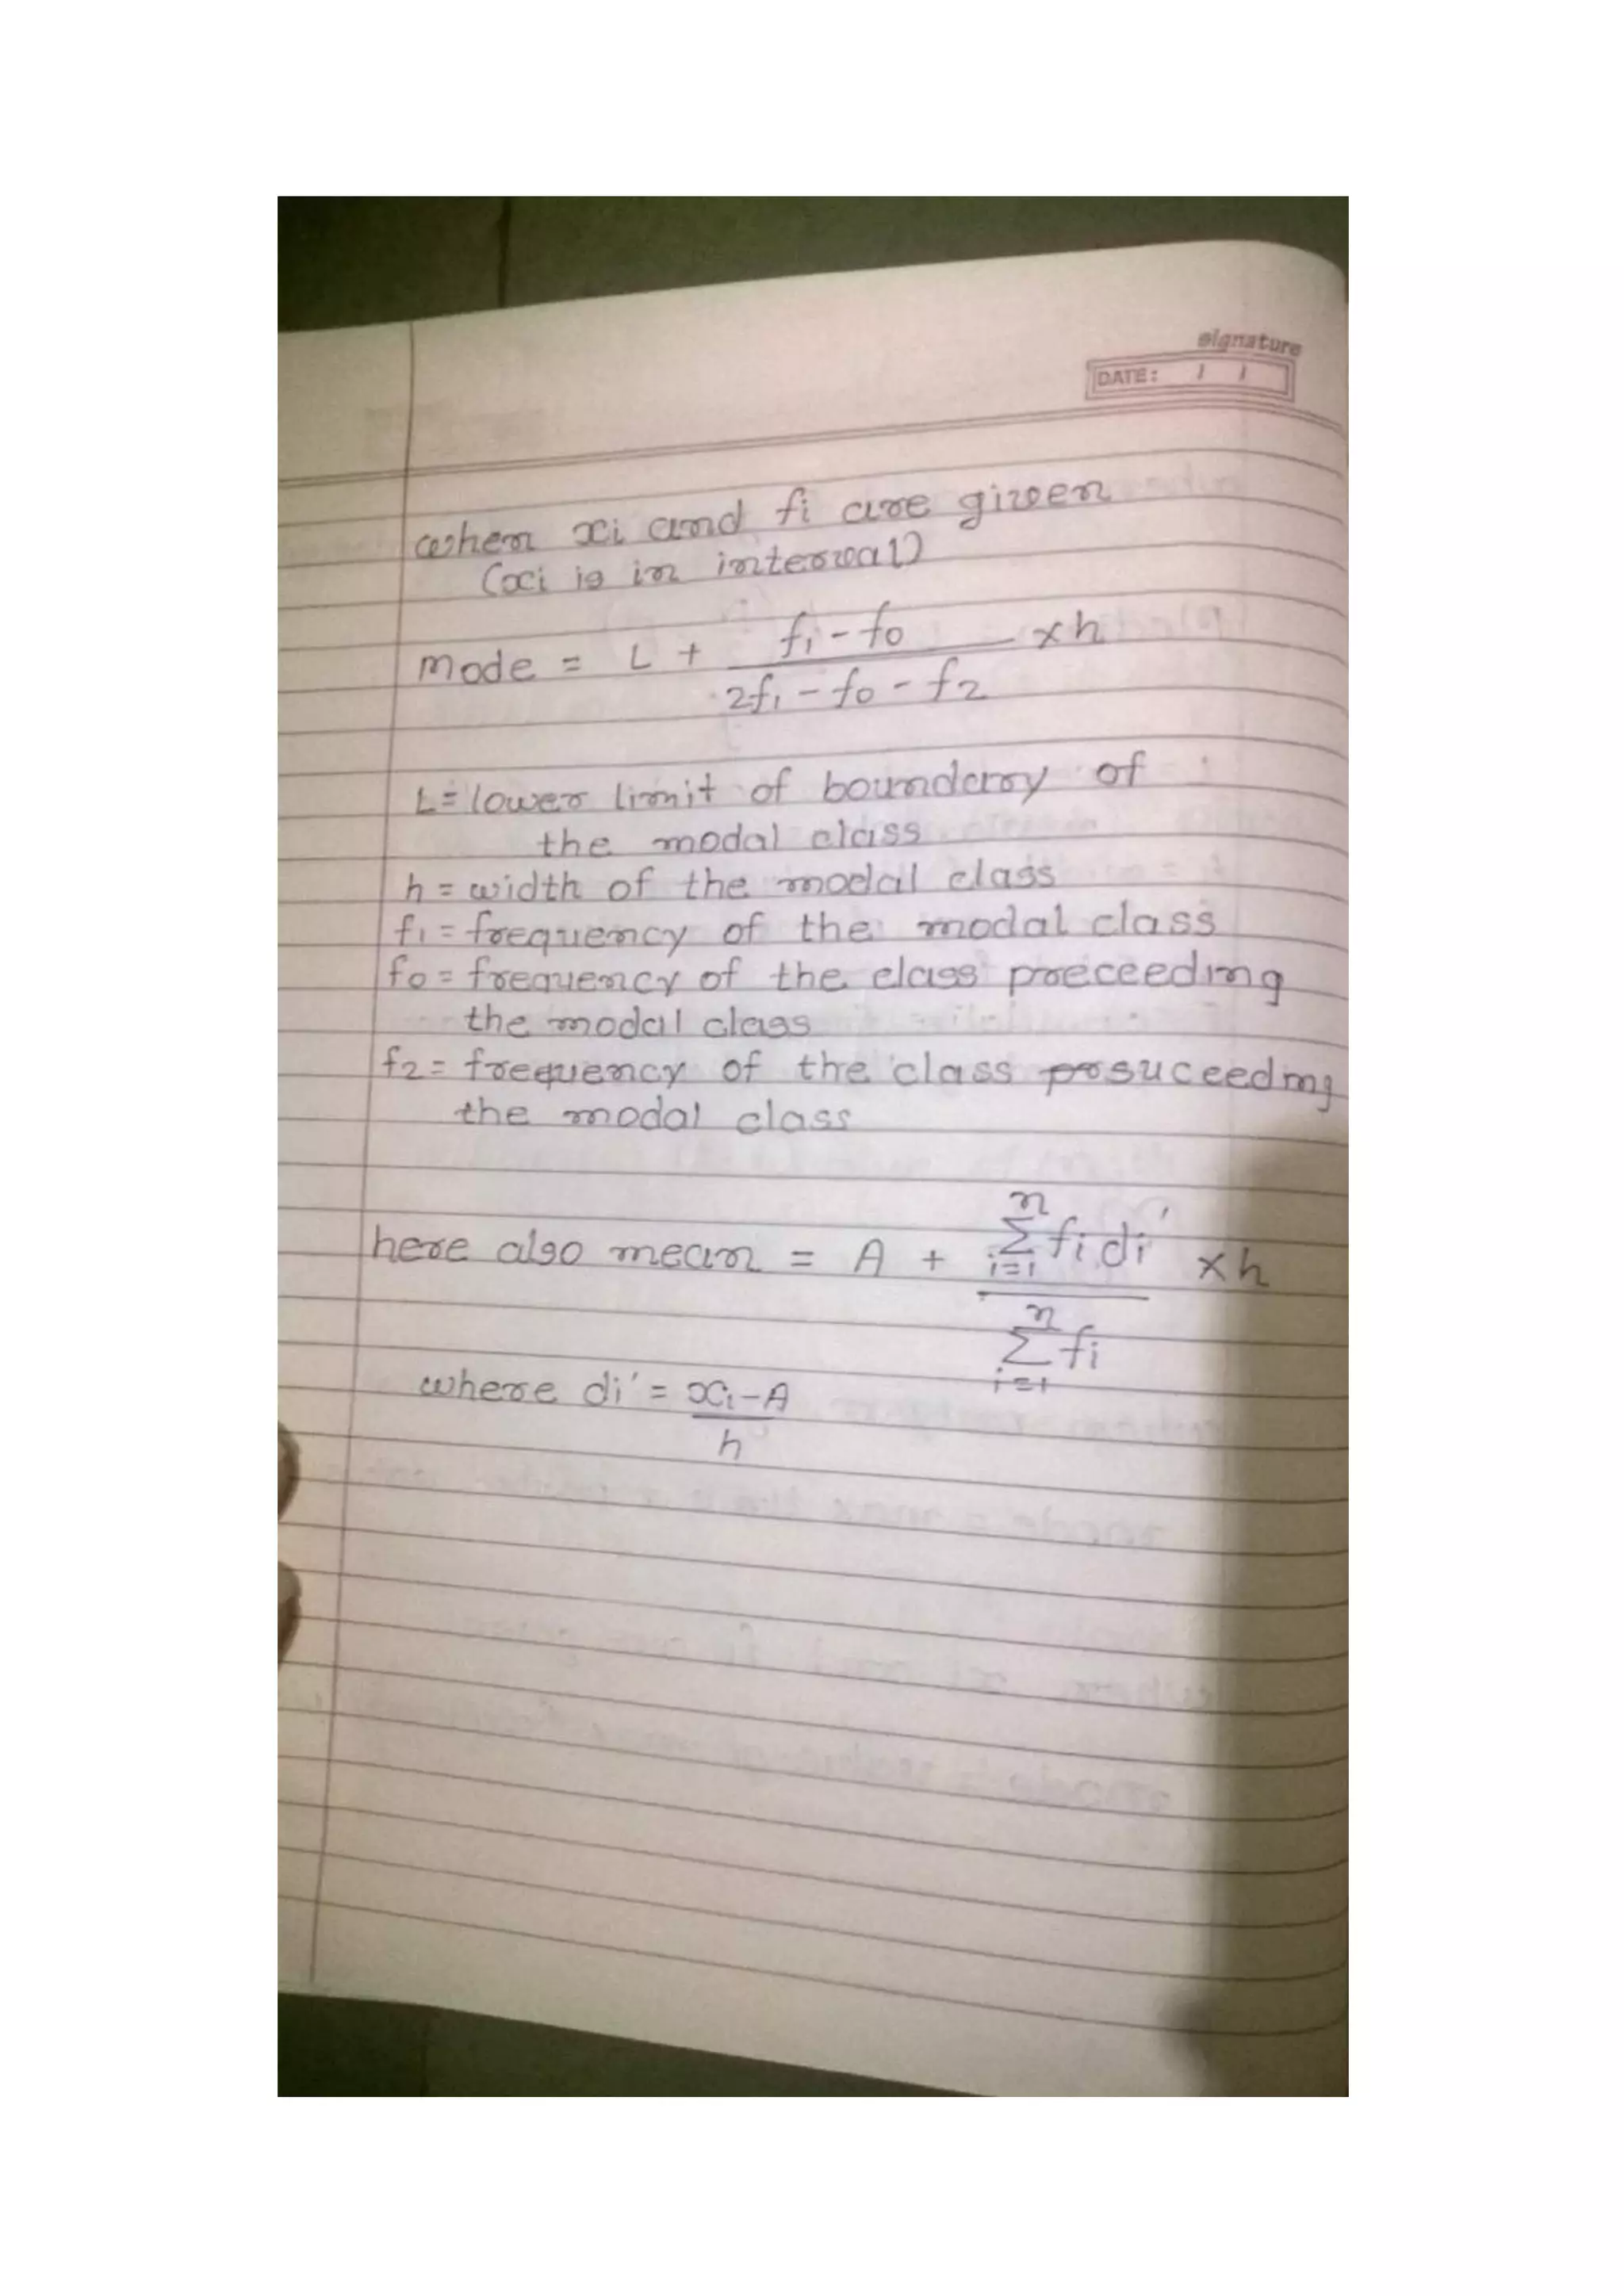 signature
DATE: / /
when xi and fi are given
(xi is in interval)
mode = L + f1 - f0 / 2f1 - f0 - f2 × h
L = lower limit of boundary of
the modal class
h = width of the modal class
f1 = frequency of the modal class
f0 = frequency of the class preceeding
the modal class
f2 = frequency of the class suceeding
the modal class
here also mean = A + n Σ i=1 fi di' / n Σ i=1 fi × h
where di' = xi - A / h